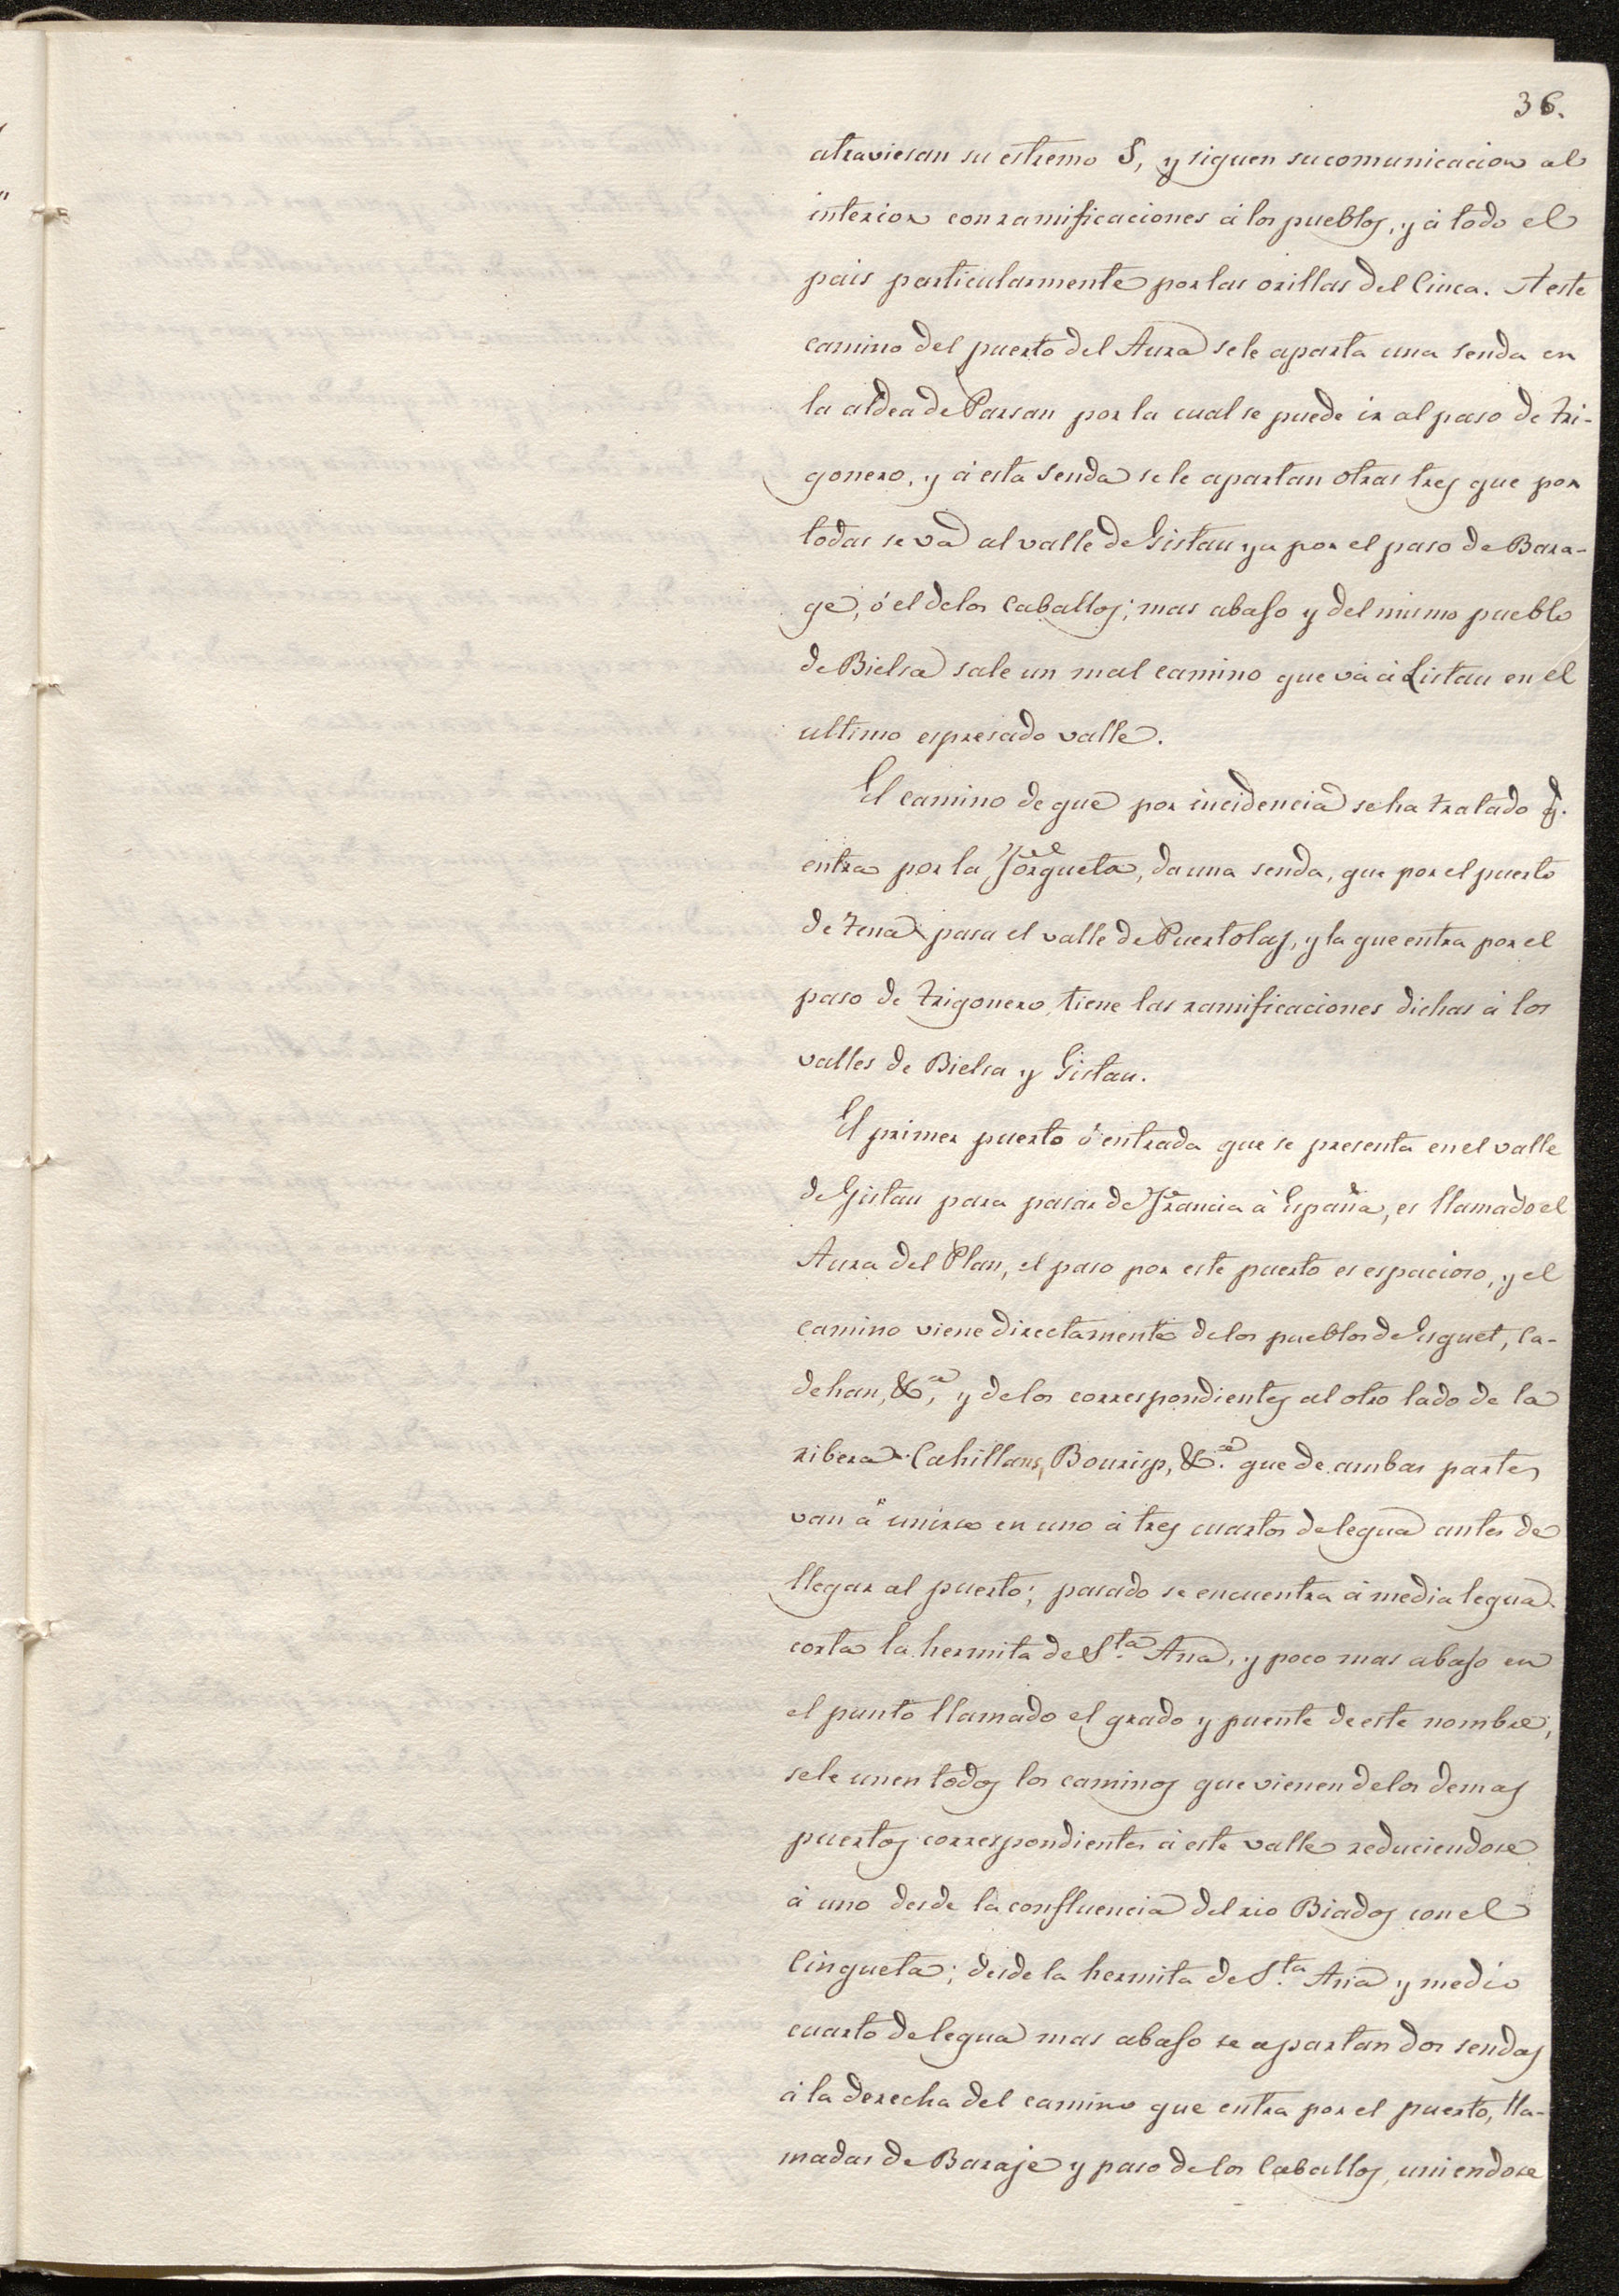 36.
atraviesan su estremo S, y siguen su comunicacion al
interior con ramificaciones á los pueblos, y á todo el
pais particularmente por las orillas del Cinca. A este
camino del puerto del Aura se le aparta una senda en
la aldea de Parsan por la cual se puede ir al paso de Tri-
gonero, y á esta senda se le apartan otras tres que por
todas se va al valle de Gistau ya por el paso de Bara-
ge, ó el de los Caballos; mas abajo y del mismo pueblo
de Bielsa sale un mal camino que vá á Listau en el
ultimo espresado valle.
El camino de que por incidencia se ha tratado q.
entra por la Forqueta, da una senda, que por el puerto
de Tena pasa el valle de Puertolas, y la que entra por el
paso de Trigonero, tiene las ramificaciones dichas á los
valles de Bielsa y Gistau.
El primer puerto ó entrada que se presenta en el valle
de Gistau para pasar de Francia á España, es llamado el
Aura del Plan, el paso por este puerto es espacioso, y el
camino viene directamente de los pueblos de Esguet, Ca-
dehan, &.ª, y de los correspondientes al otro lado de la
ribera Cahillans, Bourisp, &.ª que de ambas partes
van á unirse en uno á tres cuartos de legua antes de
llegar al puerto; pasado se encuentra á media legua
corta la hermita de S.ta Ana, y poco mas abajo en
el punto llamado el grado y puente de este nombre,
se le unen todos los caminos que vienen de los demas
puertos correspondientes á este valle reduciendose
á uno desde la confluencia del rio Biados con el
Cinqueta; desde la hermita de S.ta Ana y medio
cuarto de legua mas abajo se apartan dos sendas
á la derecha del camino que entra por el puerto, lla-
madas de Baraje y paso de los Caballos, uniendose